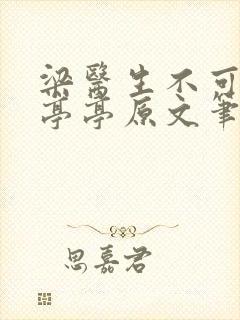 梁醫生不可
亭亭原文筆
思嘉君